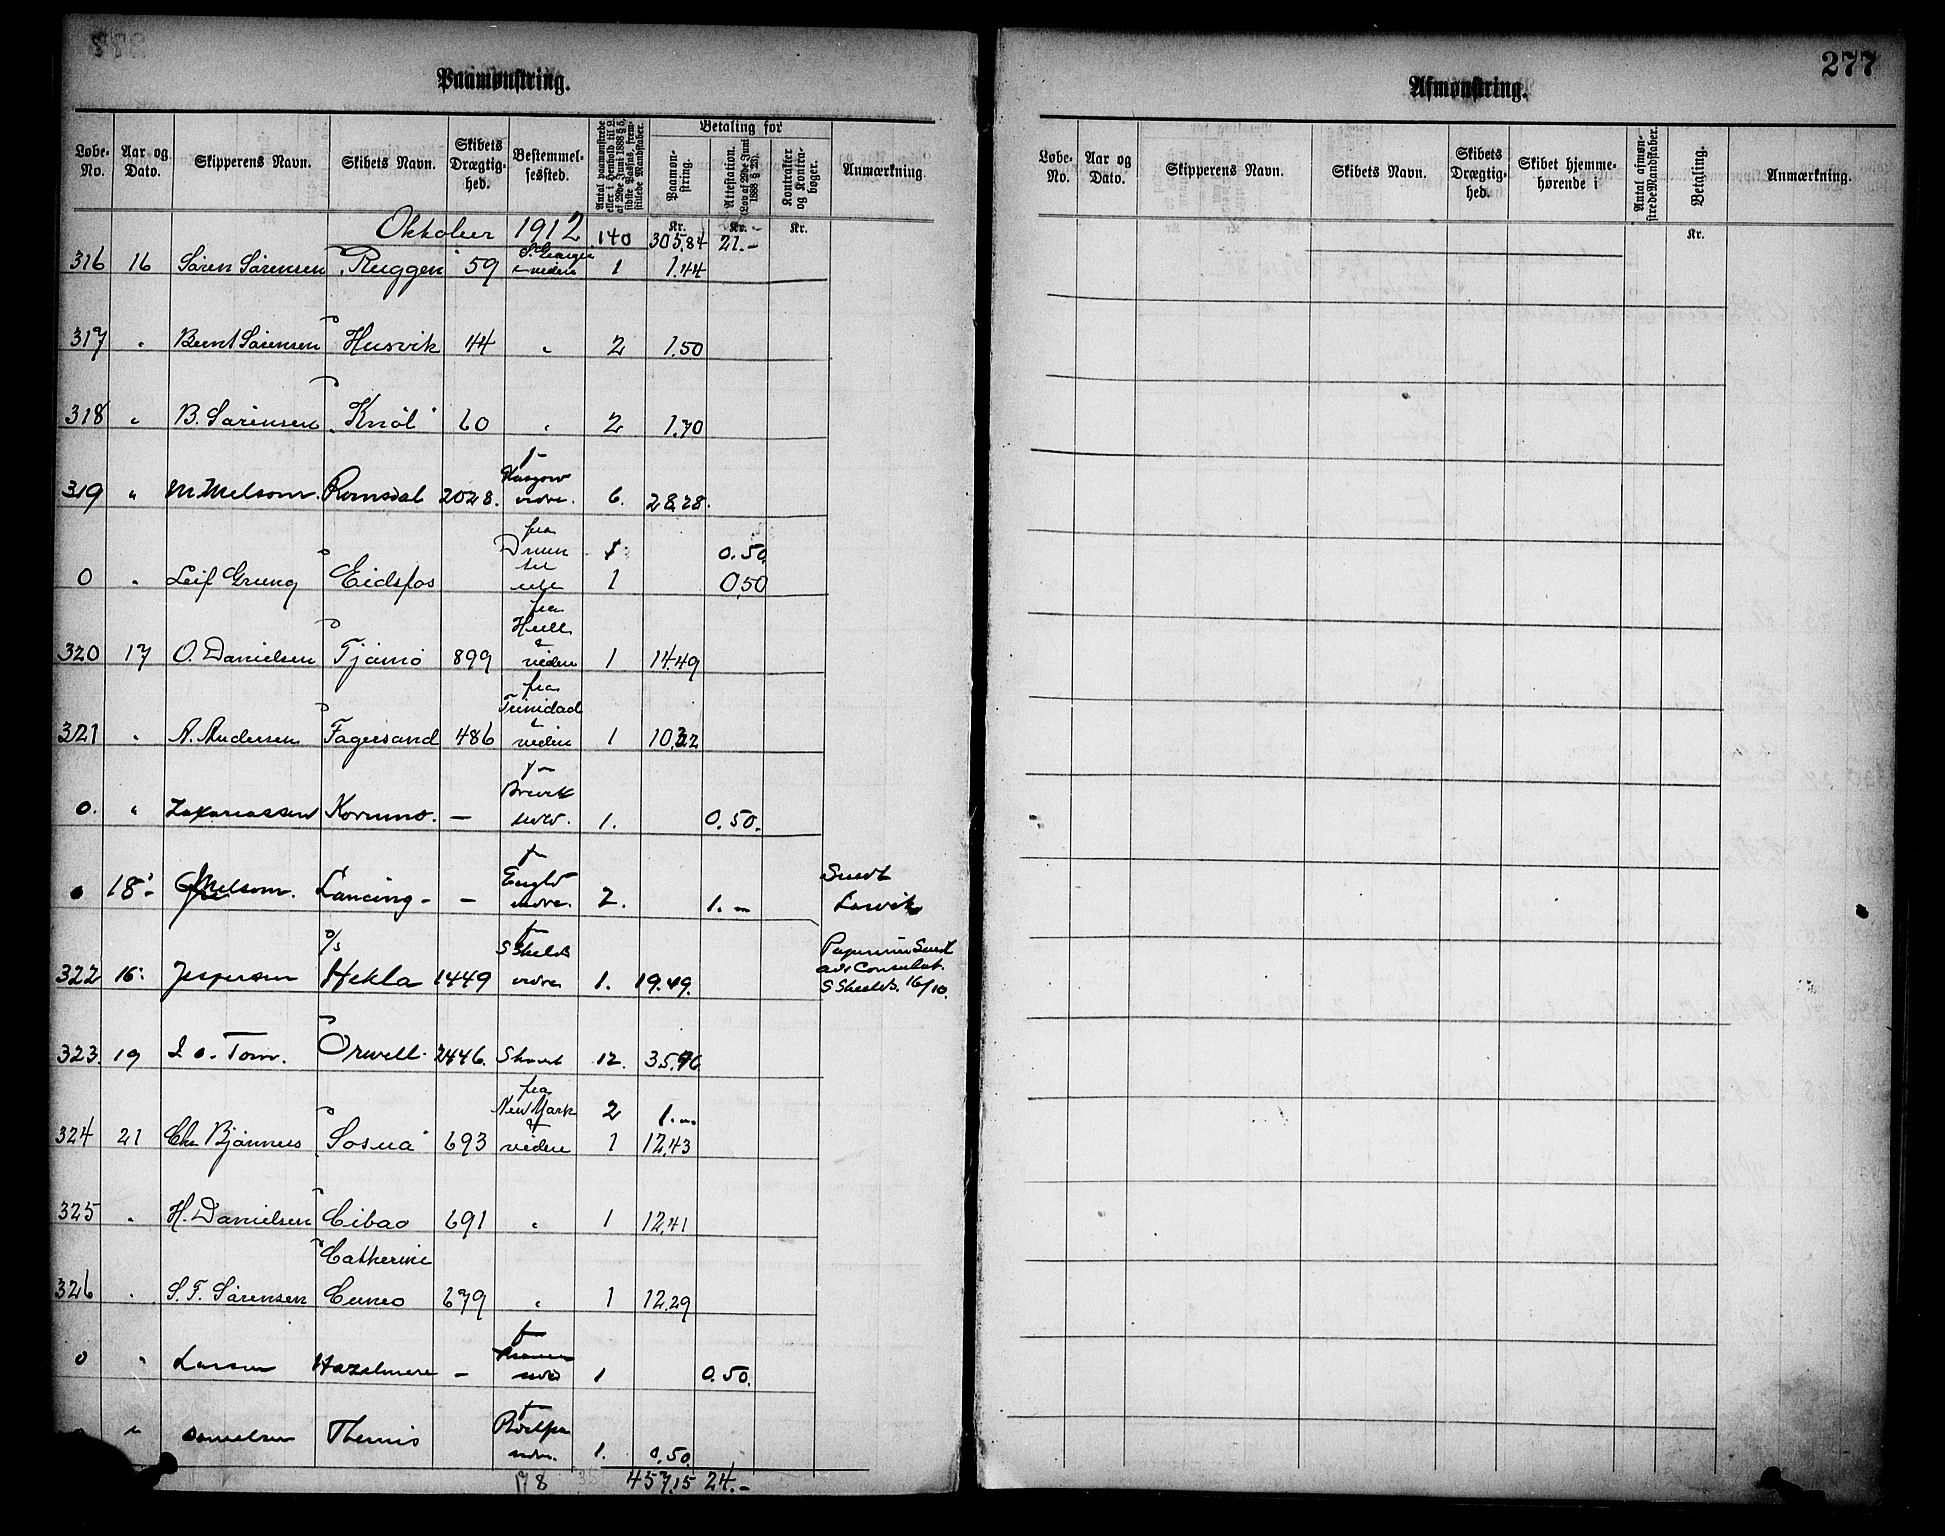 277
Paamønstring.
Løbe-No. Aar og Dato. Skipperens Navn. Skibets Navn. Skibets Drægtighed. Bestemmelsessted. Antal paamønstrede eller i Henhold til af 29de Juni 1888 § 5, sidste Passus, fremstillede Mandskaber. Betaling for Paamønstring. Attestation. (Lov af 29de Juni 1888 § 23). Kontrakter og Kontrabøger. Anmærkning.
Kr. Kr. Kr.
Oktober 1912 140 305,84 21.-
316 16 Søren Sørensen "Ruggen" 59 S. Georgia & videre 1 1.44
317 " Bernt Sørensen Husvik 44 " 2 1.50
318 " B. Sørensen "Knøl" 60 " 2 1.70
319 " M Melsom. Romsdal 2028. f Glasgow vidre. 6. 28,28.
fra Drmn 1 0.50
0 " Leif Grung Eidsfos til 1 0,50
320 17 O. Danielsen Tjømø 899 fra Hull & videre 1 14.49
321 " A. Andersen Fagersand 486 fra Trinidad & videre 1 10,22
0. " Zakariassen Kornmo. — Brevik 1. 0.50.
0 18 Melsom. Lancing - - f Engld vidre. 2. 1.- Sendt Larvik
322 16 Jespersen s/s Hekla 1449 f S Shields vidre 1. 19.49. Papirerne Sendt Consulat. S Shields. 16/10.
323. 19 Tom. Orwell. 2446. 12. 35.96
fra New York 2 1.-
324 21 Chr Bjønnes Sosua 693 & videre 1 12,43
325 " H. Danielsen Cibao 691 " 1 12,41
326 " S. F. Sørensen Catherine Cuneo 679 " 1 12,29
0 " Larsen Hazelmere - f 1 0.50.
" Danielsen Themis f vidre. 1. 0,50.
178 457,15 24.-
Afmønstring.
Løbe-No. Aar og Dato. Skipperens Navn. Skibets Navn. Skibets Drægtighed. Skibet hjemmehørende i Antal afmønstrede Mandskaber. Betaling. Anmærkning.
Kr.